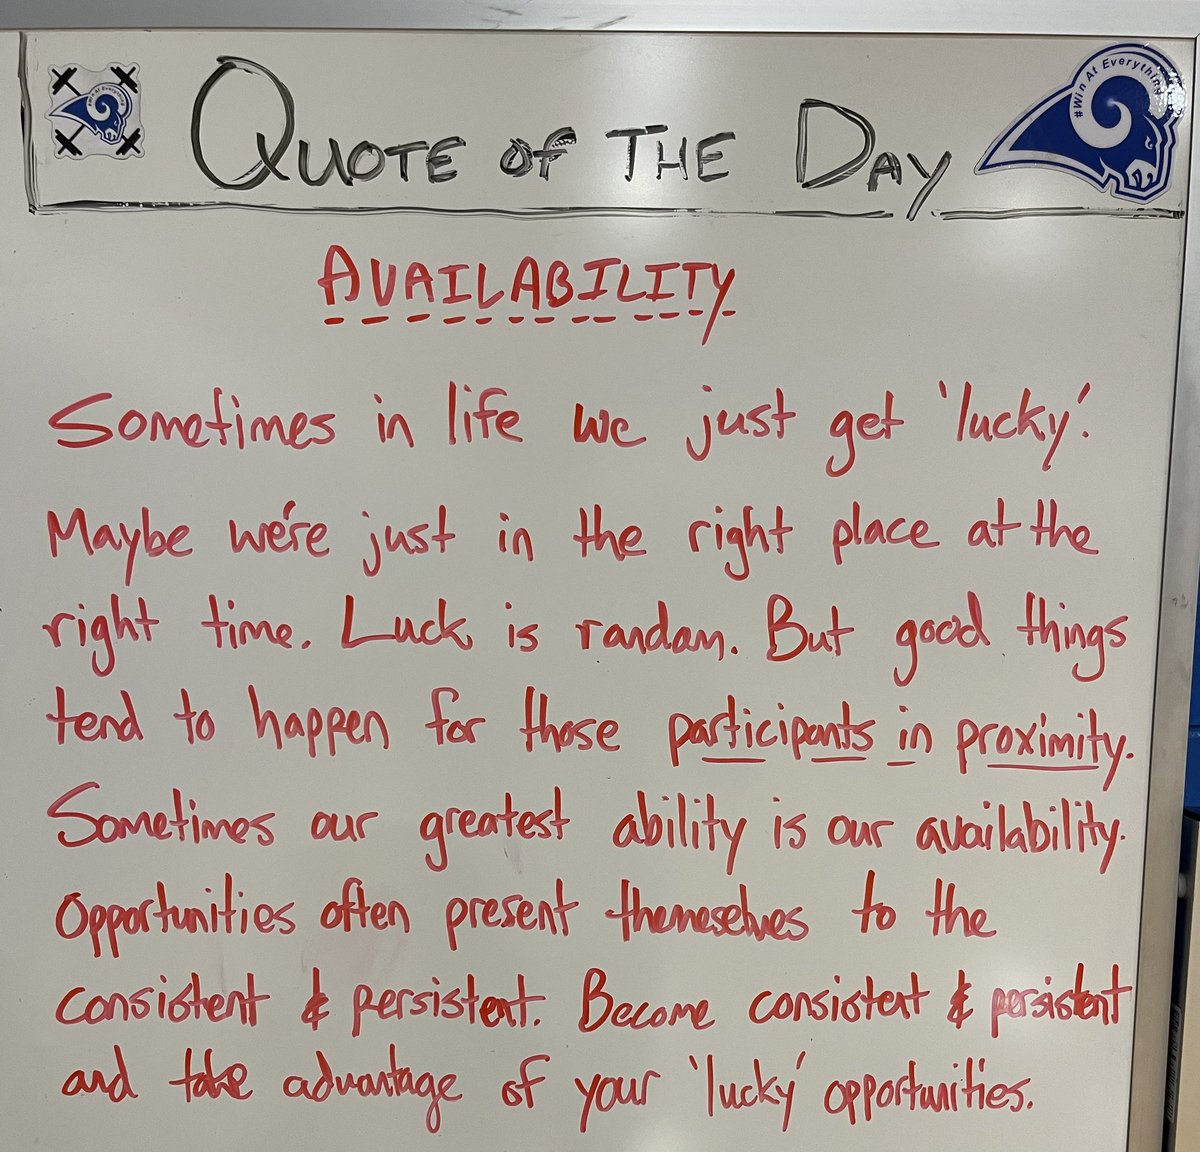 #Win At Everything
QUOTE OF THE DAY
#Win At Everything
AVAILABILITY
Sometimes in life we just get 'lucky'.
Maybe we're just in the right place at the
right time. Luck is random. But good things
tend to happen for those participants in proximity.
Sometimes our greatest ability is our availability.
Opportunities often present themeselves to the
consistent & persistent. Become consistent & persistent
and take advantage of your 'lucky' opportunities.